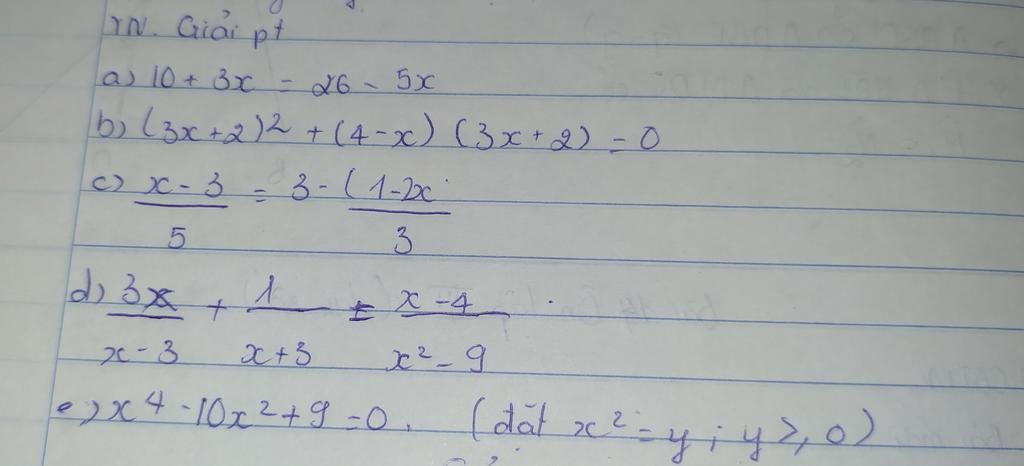 IV. Giải pt
a) 10 + 3x = 26 - 5x
b) (3x+2)² + (4-x) (3x+2) = 0
c) x - 3 / 5 = 3 - (1-2x / 3
d) 3x / x - 3 + 1 / x+3 = x - 4 / x² - 9
e) x⁴ - 10x² + 9 = 0. (đặt x² = y ; y ≥ 0)